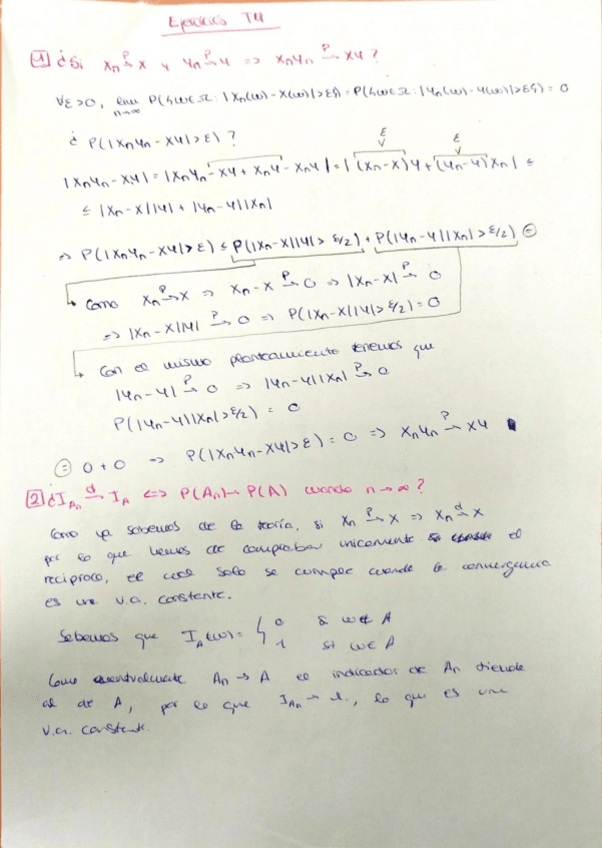 Ejercicios T4
1 ¿Si Xn →P X y Yn →P Y => XnYn →P XY?
∀ε>0, lim n→∞ P({ω∈Ω: |Xn(ω)-X(ω)|>ε}) = P({ω∈Ω: |Yn(ω)-Y(ω)|>ε}) = 0
¿ P(|XnYn-XY|>ε)?
|XnYn-XY| = |XnYn-XY+XnY-XnY| = |(Xn-X)Y+(Yn-Y)Xn| ≤
≤ |Xn-X||Y| + |Yn-Y||Xn|
=> P(|XnYn-XY|>ε) ≤ P(|Xn-X||Y|>ε/2) + P(|Yn-Y||Xn|>ε/2) =
Como Xn →P X => Xn-X →P 0 => |Xn-X| →P 0
=> |Xn-X||Y| →P 0 => P(|Xn-X||Y|>ε/2) = 0
Con el mismo planteamiento tenemos que
|Yn-Y| →P 0 => |Yn-Y||Xn| →P 0
P(|Yn-Y||Xn|>ε/2) = 0
= 0+0 => P(|XnYn-XY|>ε) = 0 => XnYn →P XY
2 ¿I_An →d I_A <=> P(An)→P(A) cuando n→∞?
Como ya sabemos de la teoría, si Xn →P X => Xn →d X
por lo que hemos de comprobar únicamente el
recíproco, el cual solo se cumple cuando la convergencia
es una v.a. constante.
Sabemos que I_A(ω) = { 0 si ω∉A
1 si ω∈A
Como eventualmente An → A el indicador de An tiende
al de A, por lo que I_An → 1, lo que es una
v.a. constante.